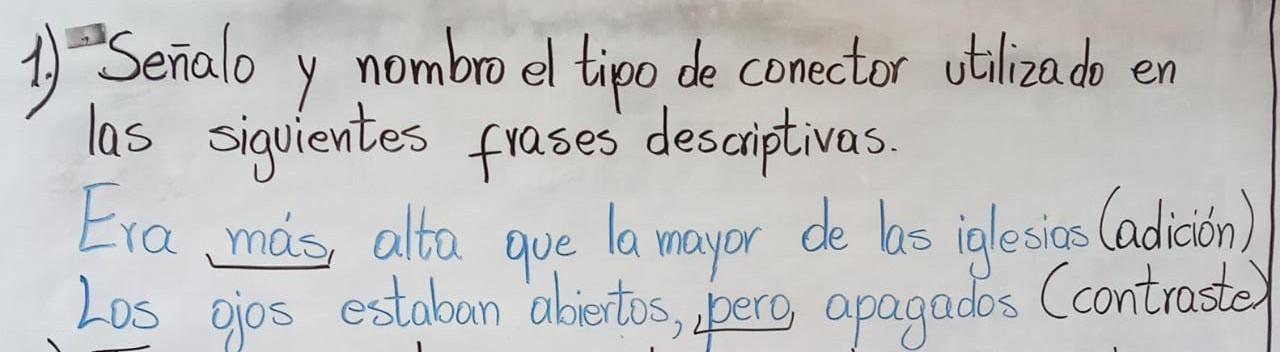 1.) Señalo y nombro el tipo de conector utilizado en
las siguientes frases descriptivas.
Era más alta que la mayor de las iglesias (adición)
Los ojos estaban abiertos, pero apagados (contraste)